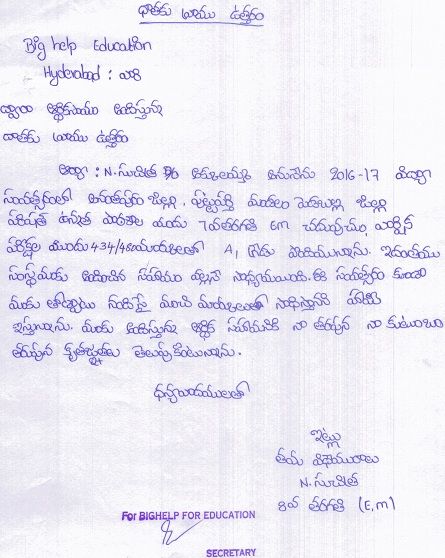 దాతకు రాయు ఉత్తరం
Big help Education
Hyderabad : వారి
ద్వారా ఆర్థికసాయం అందిస్తున్న
దాతకు రాయు ఉత్తరం
ఆర్యా : N. సుచిత్ర D/o అక్కులయ్య అనునేను 2016-17 విద్యా
సంవత్సరంలో అనంతపురం జిల్లా, పుట్టపర్తి మండలం పెడబల్లి జిల్లా
పరిషత్ ఉన్నత పాఠశాల యందు 7వతరగతి EM చదువుచూ, వార్షిక
పరీక్షల యందు 434/480మార్కులతో A1 గ్రేడు పొందియున్నాను. ఇదంతయు
సంస్థ మాకు అందించిన సహాయం వల్లనే సాధ్యమయింది. ఈ సంవత్సరం కూడా
మాకు తోడ్పాటు నందిస్తే మంచి మార్కులతో సాధిస్తానని హామీ
ఇస్తున్నాను. మాకు అందిస్తున్న ఆర్థిక సహాయానికి నా తరపున నా కుటుంబం
తరపున కృతజ్ఞతలు తెలుపుకుంటున్నాను.
ధన్యవాదములతో
ఇట్లు
తమ విధేయురాలు
N. సుచిత్ర
8వ తరగతి (E,m)
For BIGHELP FOR EDUCATION
SECRETARY